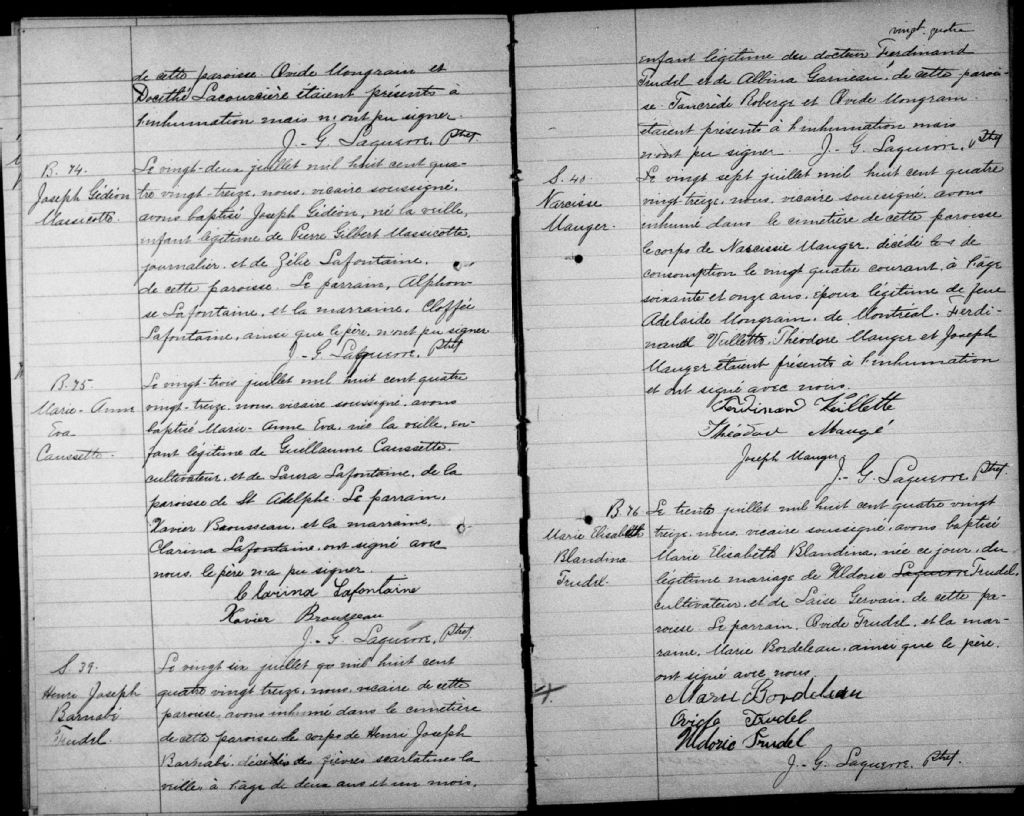 de cette paroisse. Ovide Mongrain et
Docithé Lacourcière étaient présents à
l'inhumation mais n'ont pu signer.
J.-G. Laquerre, Ptre
B. 74.
Joseph Gédéon
Massicotte
Le vingt-deux juillet mil huit cent qua-
tre vingt treize, nous, vicaire soussigné,
avons baptisé Joseph Gédéon, né la veille,
enfant légitime de Pierre Gilbert Massicotte,
journalier, et de Zélie Lafontaine,
de cette paroisse. Le parrain, Alphon-
se Lafontaine, et la marraine, Cloffée
Lafontaine, ainsi que le père, n'ont pu signer
J.-G. Laquerre, Ptre
B. 75
Marie-Anne
Eva
Caussette.
Le vingt-trois juillet mil huit cent quatre
vingt-treize, nous, vicaire soussigné, avons
baptisé Marie-Anne Eva, née la veille, en-
fant légitime de Guillaume Caussette,
cultivateur, et de Laura Lafontaine, de la
paroisse de St Adelphe. Le parrain,
Xavier Brousseau, et la marraine,
Clarina Lafontaine, ont signé avec
nous, le père n'a pu signer.
Clarina Lafontaine
Xavier Brousseau
J.-G. Laquerre, Ptre
S. 39.
Henri Joseph
Barnabé
Trudel.
Le vingt six juillet mil huit cent
quatre vingt treize, nous, vicaire de cette
paroisse, avons inhumé dans le cimetière
de cette paroisse le corps de Henri Joseph
Barnabé, décédé des fièvres scarlatines la
veille, à l'âge de deux ans et un mois,
vingt-quatre
enfant légitime du docteur Ferdinand
Trudel et de Albina Garneau, de cette parois-
se. Tancrède Roberge et Ovide Mongrain
étaient présents à l'inhumation mais
n'ont pu signer. J.-G. Laquerre, Ptre
S. 40.
Narcisse
Mauger.
Le vingt sept juillet mil huit cent quatre
vingt treize, nous, vicaire soussigné, avons
inhumé dans le cimetière de cette paroisse
le corps de Narcisse Mauger, décédé de
consomption le vingt quatre courant, à l'âge
soixante et onze ans, époux légitime de feue
Adelaide Mongrain, de Montréal. Ferdi-
nand Veillette, Théodore Mauger et Joseph
Mauger étaient présents à l'inhumation
et ont signé avec nous.
Ferdinand Veillette
Théodore Maugé
Joseph Mauger
J.-G. Laquerre Ptre
B. 76
Marie Elisabeth
Blandina
Trudel.
Le trente juillet mil huit cent quatre vingt
treize, nous, vicaire soussigné, avons baptisé
Marie Elisabeth Blandina, née ce jour, du
légitime mariage de Uldoric Laquerre Trudel,
cultivateur, et de Laise Gervais, de cette pa-
roisse. Le parrain, Ovide Trudel, et la mar-
raine, Marie Bordeleau, ainsi que le père,
ont signé avec nous.
Marie Bordeleau
Ovide Trudel
Uldoric Trudel
J.-G. Laquerre, Ptre.